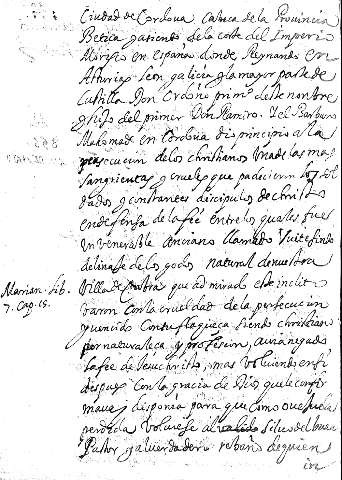 Ciudad de Cordova, cabeca de la Provincia
Betica y asiento de la corte del Imperio
Morisco en España donde Reynando en
Asturias Leon y galicia y la mayor parte de
Castilla Don Ordoño primº deste nombre
y hijo del primer Don Ramiro. Y el Barbaro
Mahomad en Cordova dio principio a la
persecucion de los christianos una de las mas
sangrientas y crueles que padecieron los sol
dados y constantes discipulos de christo
en defensa de la fee entre los quales fue
un venerable anciano llamado
de linaje de los godos natural de nuestra
Villa de Cabra que admirado
Marian. lib.
7. Cap. 15.
con la crueldad de la persecucion
y vencido con su flaqueca siendo christiano
por naturaleca y profesion, avia negado
la fee de Jesuchristo, mas volviendo en si
despues con la gracia de Dios que le
disponia para que como oveja
perdida volviese al silvo del buen
Pastor y al verdadero rebaño de quien